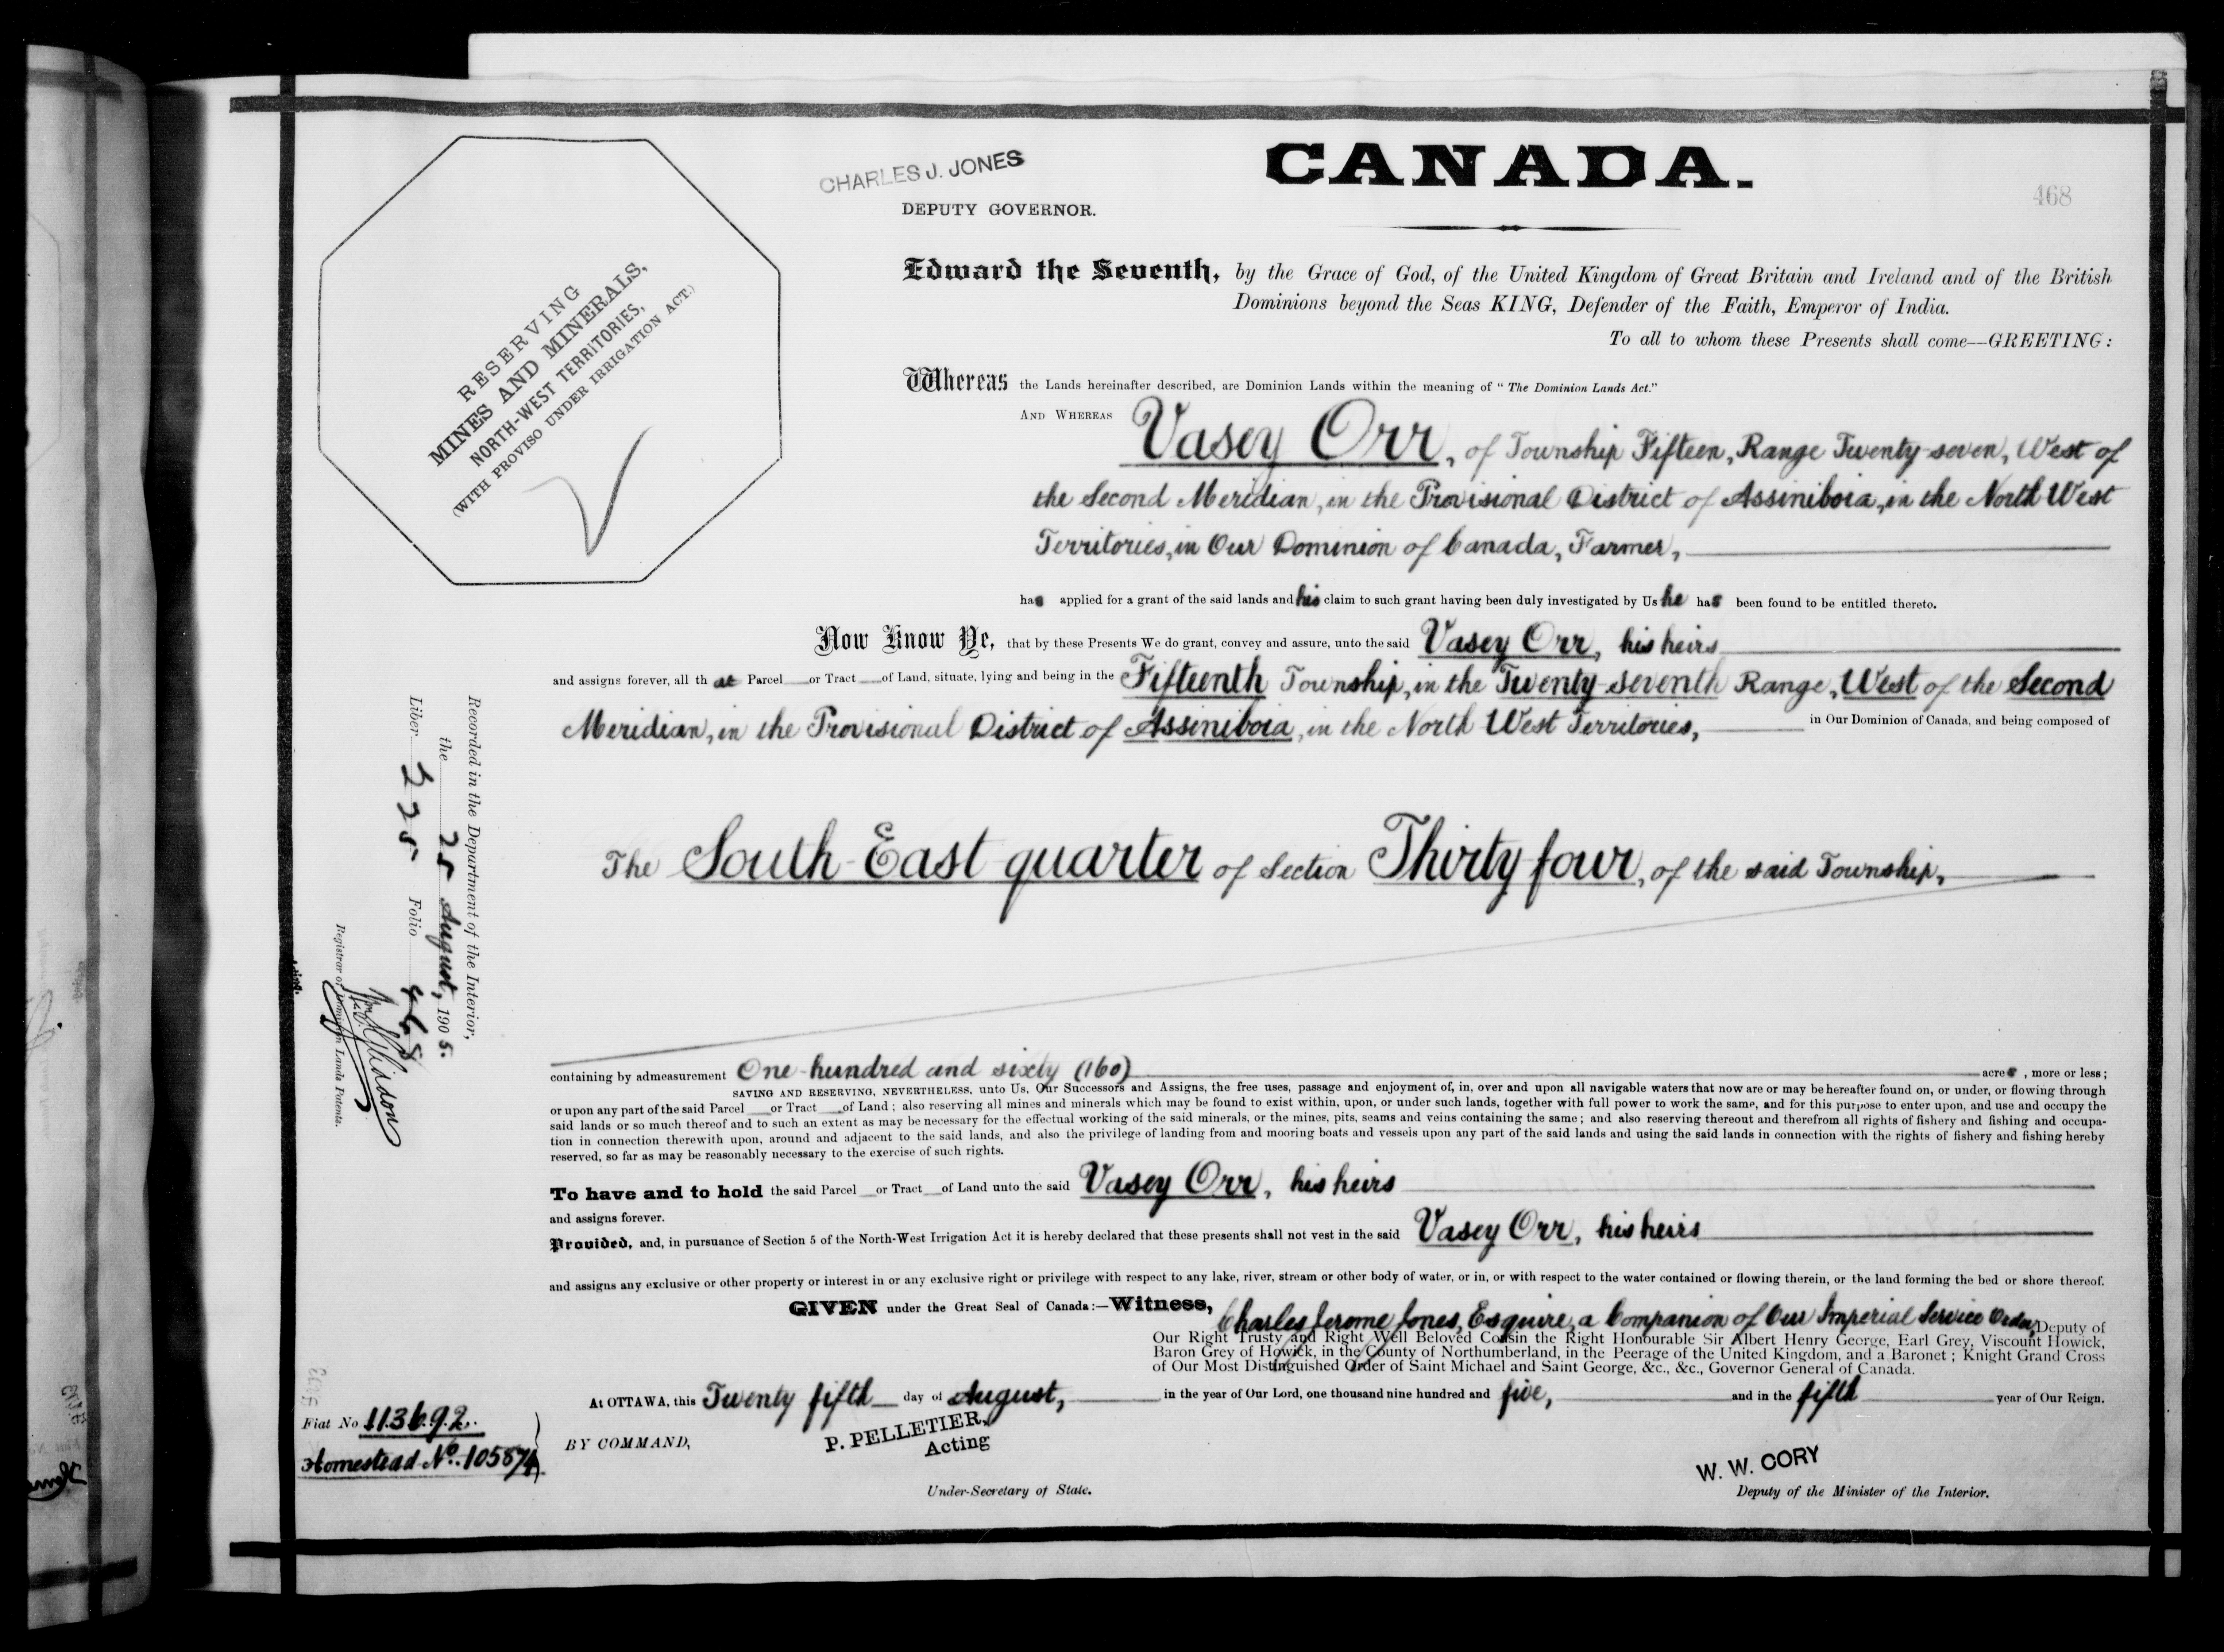 CHARLES J. JONES
DEPUTY GOVERNOR.
CANADA.
468
RESERVING
MINES AND MINERALS,
NORTH-WEST TERRITORIES,
(WITH PROVISO UNDER IRRIGATION ACT.)
Edward the Seventh, by the Grace of God, of the United Kingdom of Great Britain and Ireland and of the British
Dominions beyond the Seas KING, Defender of the Faith, Emperor of India.
To all to whom these Presents shall come—GREETING:
Whereas the Lands hereinafter described, are Dominion Lands within the meaning of "The Dominion Lands Act."
AND WHEREAS Vasey Orr, of Township Fifteen, Range Twenty-seven, West of
the Second Meridian, in the Provisional District of Assiniboia, in the North West
Territories, in Our Dominion of Canada, Farmer,
has applied for a grant of the said lands and his claim to such grant having been duly investigated by Us he has been found to be entitled thereto.
Now Know Ye, that by these Presents We do grant, convey and assure, unto the said Vasey Orr, his heirs
and assigns forever, all that Parcel or Tract of Land, situate, lying and being in the Fifteenth Township, in the Twenty-seventh Range, West of the Second
Meridian, in the Provisional District of Assiniboia, in the North West Territories, in Our Dominion of Canada, and being composed of
The South East quarter of Section Thirty four, of the said Township,
Recorded in the Department of the Interior,
the 25 August, 1905.
Liber 225 Folio 468
Registrar of Dominion Lands Patents.
containing by admeasurement One hundred and sixty (160) acres, more or less;
SAVING AND RESERVING, NEVERTHELESS, unto Us, Our Successors and Assigns, the free uses, passage and enjoyment of, in, over and upon all navigable waters that now are or may be hereafter found on, or under, or flowing through
or upon any part of the said Parcel or Tract of Land; also reserving all mines and minerals which may be found to exist within, upon, or under such lands, together with full power to work the same, and for this purpose to enter upon, and use and occupy the
said lands or so much thereof and to such an extent as may be necessary for the effectual working of the said minerals, or the mines, pits, seams and veins containing the same; and also reserving thereout and therefrom all rights of fishery and fishing and occupa-
tion in connection therewith upon, around and adjacent to the said lands, and also the privilege of landing from and mooring boats and vessels upon any part of the said lands and using the said lands in connection with the rights of fishery and fishing hereby
reserved, so far as may be reasonably necessary to the exercise of such rights.
To have and to hold the said Parcel or Tract of Land unto the said Vasey Orr, his heirs
and assigns forever.
Provided, and, in pursuance of Section 5 of the North-West Irrigation Act it is hereby declared that these presents shall not vest in the said Vasey Orr, his heirs
and assigns any exclusive or other property or interest in or any exclusive right or privilege with respect to any lake, river, stream or other body of water, or in, or with respect to the water contained or flowing therein, or the land forming the bed or shore thereof.
GIVEN under the Great Seal of Canada:—Witness, Charles Jerome Jones, Esquire, a Companion of Our Imperial Service Order, Deputy of
Our Right Trusty and Right Well Beloved Cousin the Right Honourable Sir Albert Henry George, Earl Grey, Viscount Howick,
Baron Grey of Howick, in the County of Northumberland, in the Peerage of the United Kingdom, and a Baronet; Knight Grand Cross
of Our Most Distinguished Order of Saint Michael and Saint George, &c., &c., Governor General of Canada.
At OTTAWA, this Twenty fifth day of August, in the year of Our Lord, one thousand nine hundred and five, and in the fifth year of Our Reign.
Fiat No 113692.
Homestead No. 105874
BY COMMAND,
P. PELLETIER,
Acting
Under-Secretary of State.
W. W. CORY
Deputy of the Minister of the Interior.